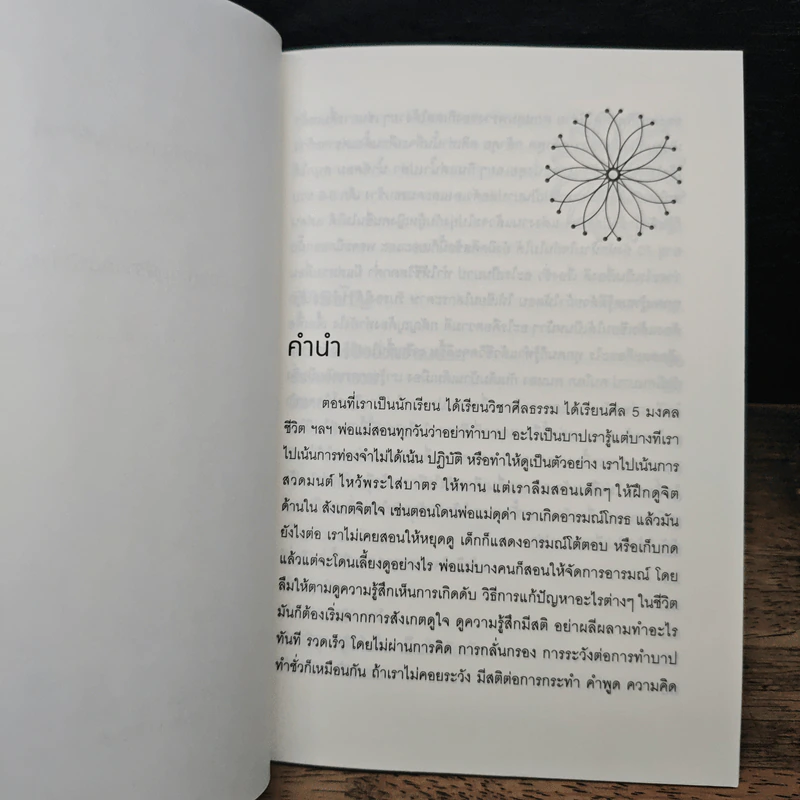 คำนำ
ตอนที่เราเป็นนักเรียน ได้เรียนวิชาศีลธรรม ได้เรียนศีล 5 มงคล
ชีวิต ฯลฯ พ่อแม่สอนทุกวันว่าอย่าทำบาป อะไรเป็นบาปเรารู้แต่บางทีเรา
ไปเน้นการท่องจำไม่ได้เน้น ปฏิบัติ หรือทำให้ดูเป็นตัวอย่าง เราไปเน้นการ
สวดมนต์ ไหว้พระใส่บาตร ให้ทาน แต่เราลืมสอนเด็กๆ ให้ฝึกดูจิต
ด้านใน สังเกตจิตใจ เช่นตอนโดนพ่อแม่ดุด่า เราเกิดอารมณ์โกรธ แล้วมัน
ยังไงต่อ เราไม่เคยสอนให้หยุดดู เด็กก็แสดงอารมณ์โต้ตอบ หรือเก็บกด
แล้วแต่จะโดนเลี้ยงดูอย่างไร พ่อแม่บางคนก็สอนให้จัดการอารมณ์ โดย
ลืมให้ตามดูความรู้สึกเห็นการเกิดดับ วิธีการแก้ปัญหาอะไรต่างๆ ในชีวิต
มันก็ต้องเริ่มจากการสังเกตดูใจ ดูความรู้สึกมีสติ อย่าผลีผลามทำอะไร
ทันที รวดเร็ว โดยไม่ผ่านการคิด การกลั่นกรอง การระวังต่อการทำบาป
ทำชั่วก็เหมือนกัน ถ้าเราไม่คอยระวัง มีสติต่อการกระทำ คำพูด ความคิด